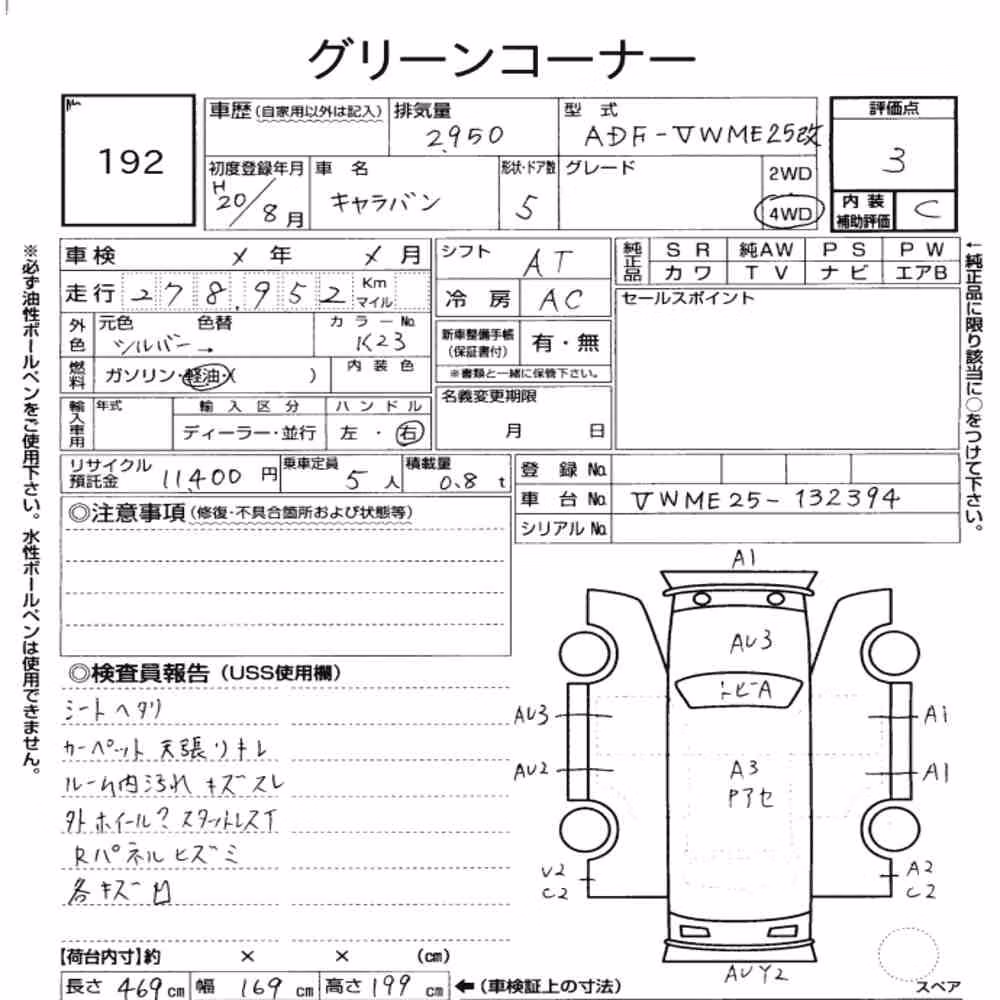 グリーンコーナー
192
車歴(自家用以外は記入) 排気量 2,950 型 式 ADF-VWME25改 評価点 3
初度登録年月 H20/8月 車 名 キャラバン 形状・ドア数 5 グレード 2WD 4WD 内装補助評価 C
※必ず油性ボールペンをご使用下さい。水性ボールペンは使用できません。
車検 × 年 × 月 シフト AT
純正品 SR 純AW PS PW
カワ TV ナビ エアB
←純正品に限り該当に○をつけて下さい。
走行 278,952 Km マイル 冷 房 AC セールスポイント
外色 元色 色替 カラーNo.
シルバー → K23
新車整備手帳(保証書付) 有・無
※書類と一緒に保管下さい。
燃料 ガソリン・軽油・( ) 内装色
輸入車用 年式 輸入区分 ハンドル
ディーラー・並行 左・右
名義変更期限
月 日
リサイクル預託金 11,400 円 乗車定員 5 人 積載量 0.8 t
登 録 No.
車 台 No. VWME25-132394
シリアル No.
◎注意事項(修復・不具合箇所および状態等)
◎検査員報告(USS使用欄)
シートヘタリ
カーペット 天張りキレ
ルーム内汚れ キズスレ
外ホイール? スタットレスT
Rパネルヒズミ
各キズ凹
A1
AU3
トビA
AU3 A1
AU2 A1
A3
Pアセ
U2 A2
C2 C2
AUY2
スペア
【荷台内寸】約 × × (cm)
長さ 469 cm 幅 169 cm 高さ 199 cm ←(車検証上の寸法)